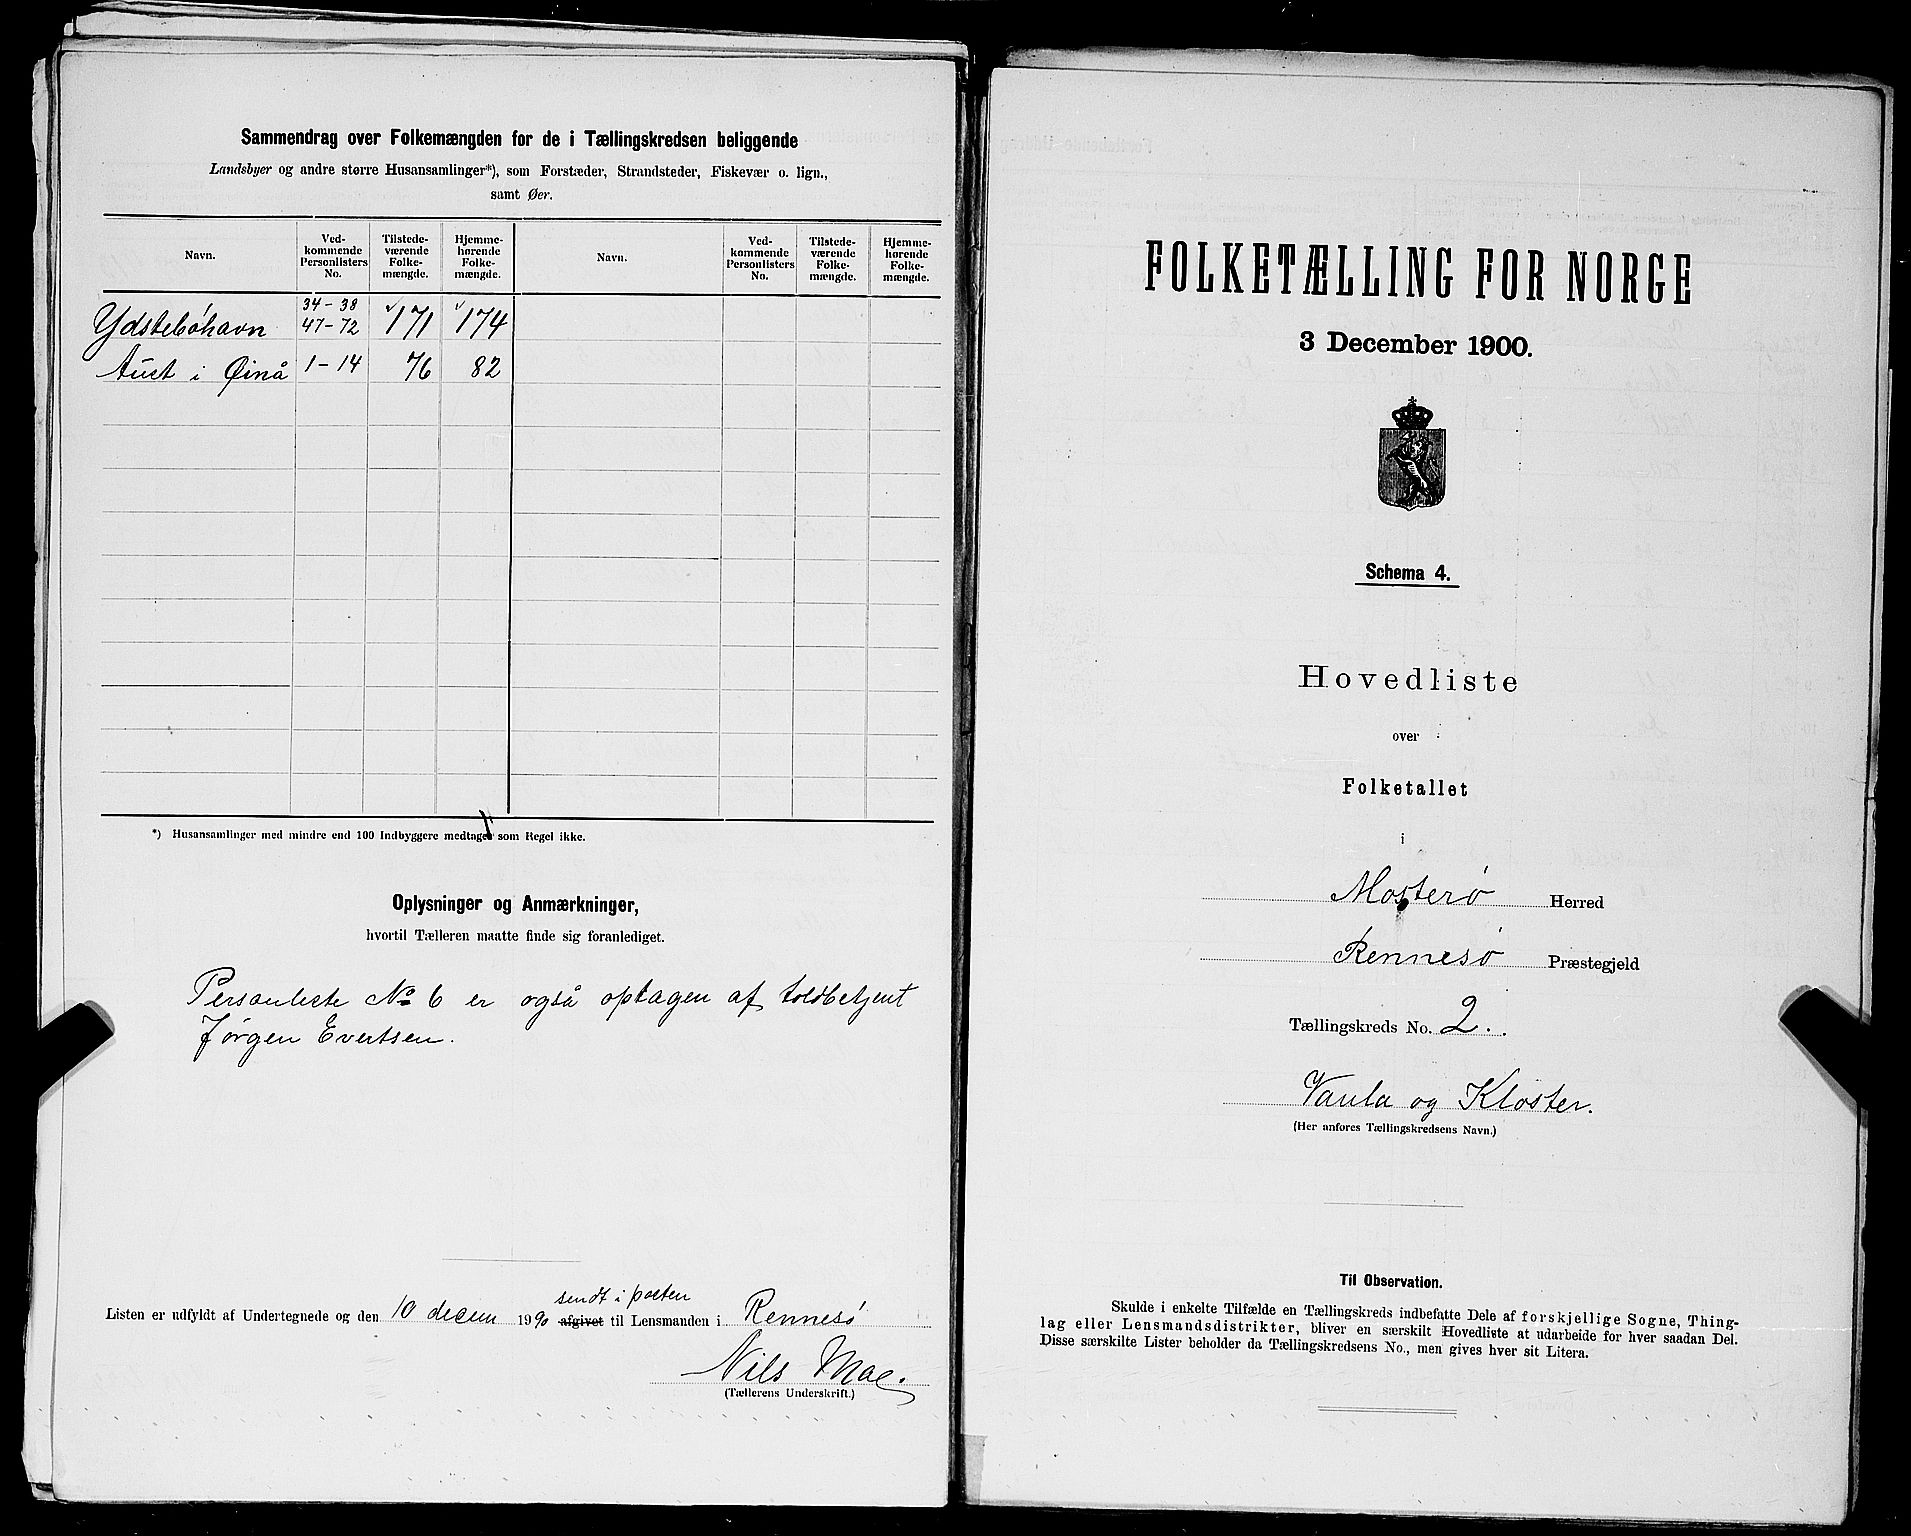 Sammendrag over Folkemængden for de i Tællingskredsen beliggende
Landsbyer og andre større Husansamlinger*), som Forstæder, Strandsteder, Fiskevær o. lign.,
samt Øer.
Navn. Ved-kommende Personlisters No. Tilstede-værende Folke-mængde. Hjemme-hørende Folke-mængde. Navn. Ved-kommende Personlisters No. Tilstede-værende Folke-mængde. Hjemme-hørende Folke-mængde.
Ydstebøhavn 34-38 47-72 171 174
Aust i Øinå 1-14 76 82
*) Husansamlinger med mindre end 100 Indbyggere medtages som Regel ikke.
Oplysninger og Anmærkninger,
hvortil Tælleren maatte finde sig foranlediget.
Personliste No 6 er også optagen af toldbetjent
Jørgen Evertsen.
sendt i posten
Listen er udfyldt af Undertegnede og den 10 decem 1990 afgivet til Lensmanden i Rennesø
Nils Moe.
(Tællerens Underskrift.)
FOLKETÆLLING FOR NORGE
3 December 1900.
Schema 4.
Hovedliste
over
Folketallet
i
Mosterø Herred
Rennesø Præstegjeld
Tællingskreds No. 2.
Vaula og Kloster.
(Her anføres Tællingskredsens Navn.)
Til Observation.
Skulde i enkelte Tilfælde en Tællingskreds indbefatte Dele af forskjellige Sogne, Thing-
lag eller Lensmandsdistrikter, bliver en særskilt Hovedliste at udarbeide for hver saadan Del.
Disse særskilte Lister beholder da Tællingskredsens No., men gives hver sit Litera.